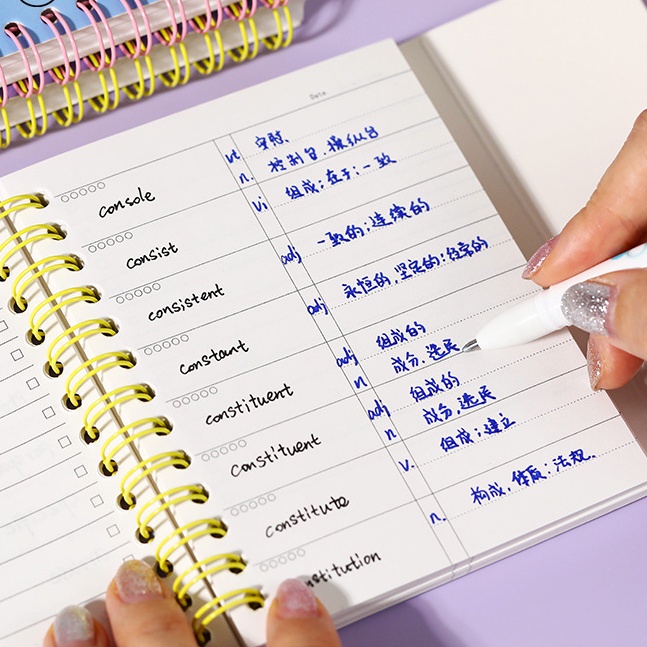 Date
console
vt 安慰.
n. 控制台.操纵台
consist
vi 组成;在于;一致
consistent
adj 一致的;连续的
constant
adj 永恒的,坚定的;经常的
constituent
adj 组成的
n 成分,选民
constituent
adj 组成的
n 成分,选民
constitute
v. 组成;建立
nstitution
n. 构成,体质;法规.